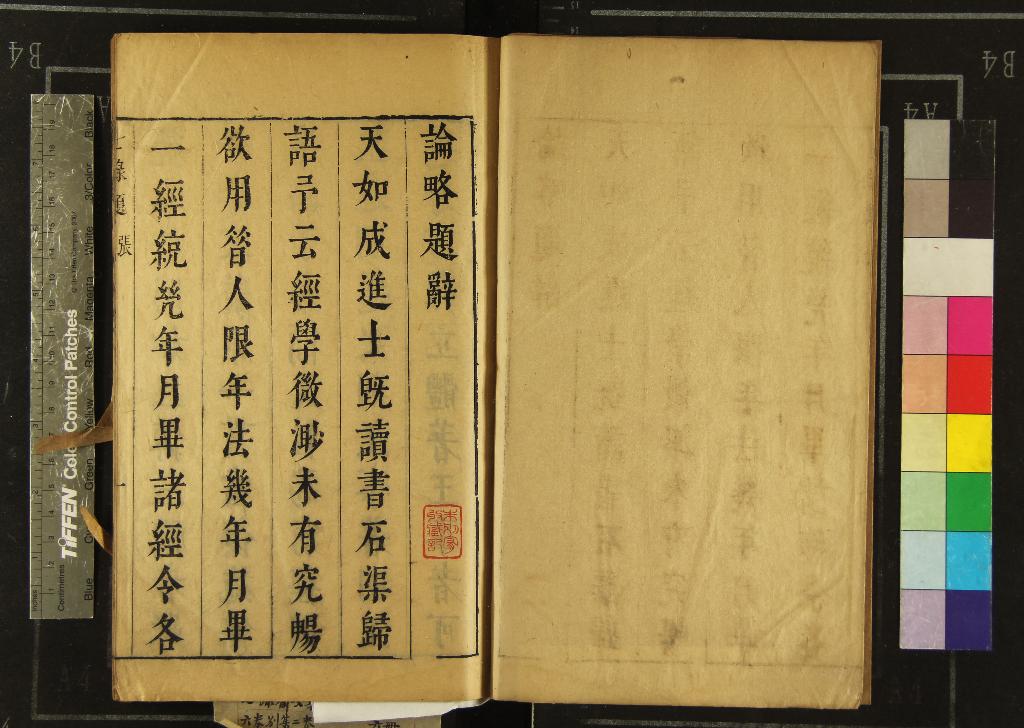 論略題辭
天如成進士旣讀書石渠歸
語予云經學微渺未有究暢
欲用昝人限年法幾年月畢
一經統兠年月畢諸經令各
張
一
B4
B4
A4
TIFFEN Color Control Patches
Blue
Green
Yellow
Red
Magenta
White
3/Color
Black
Centimetres
Inches